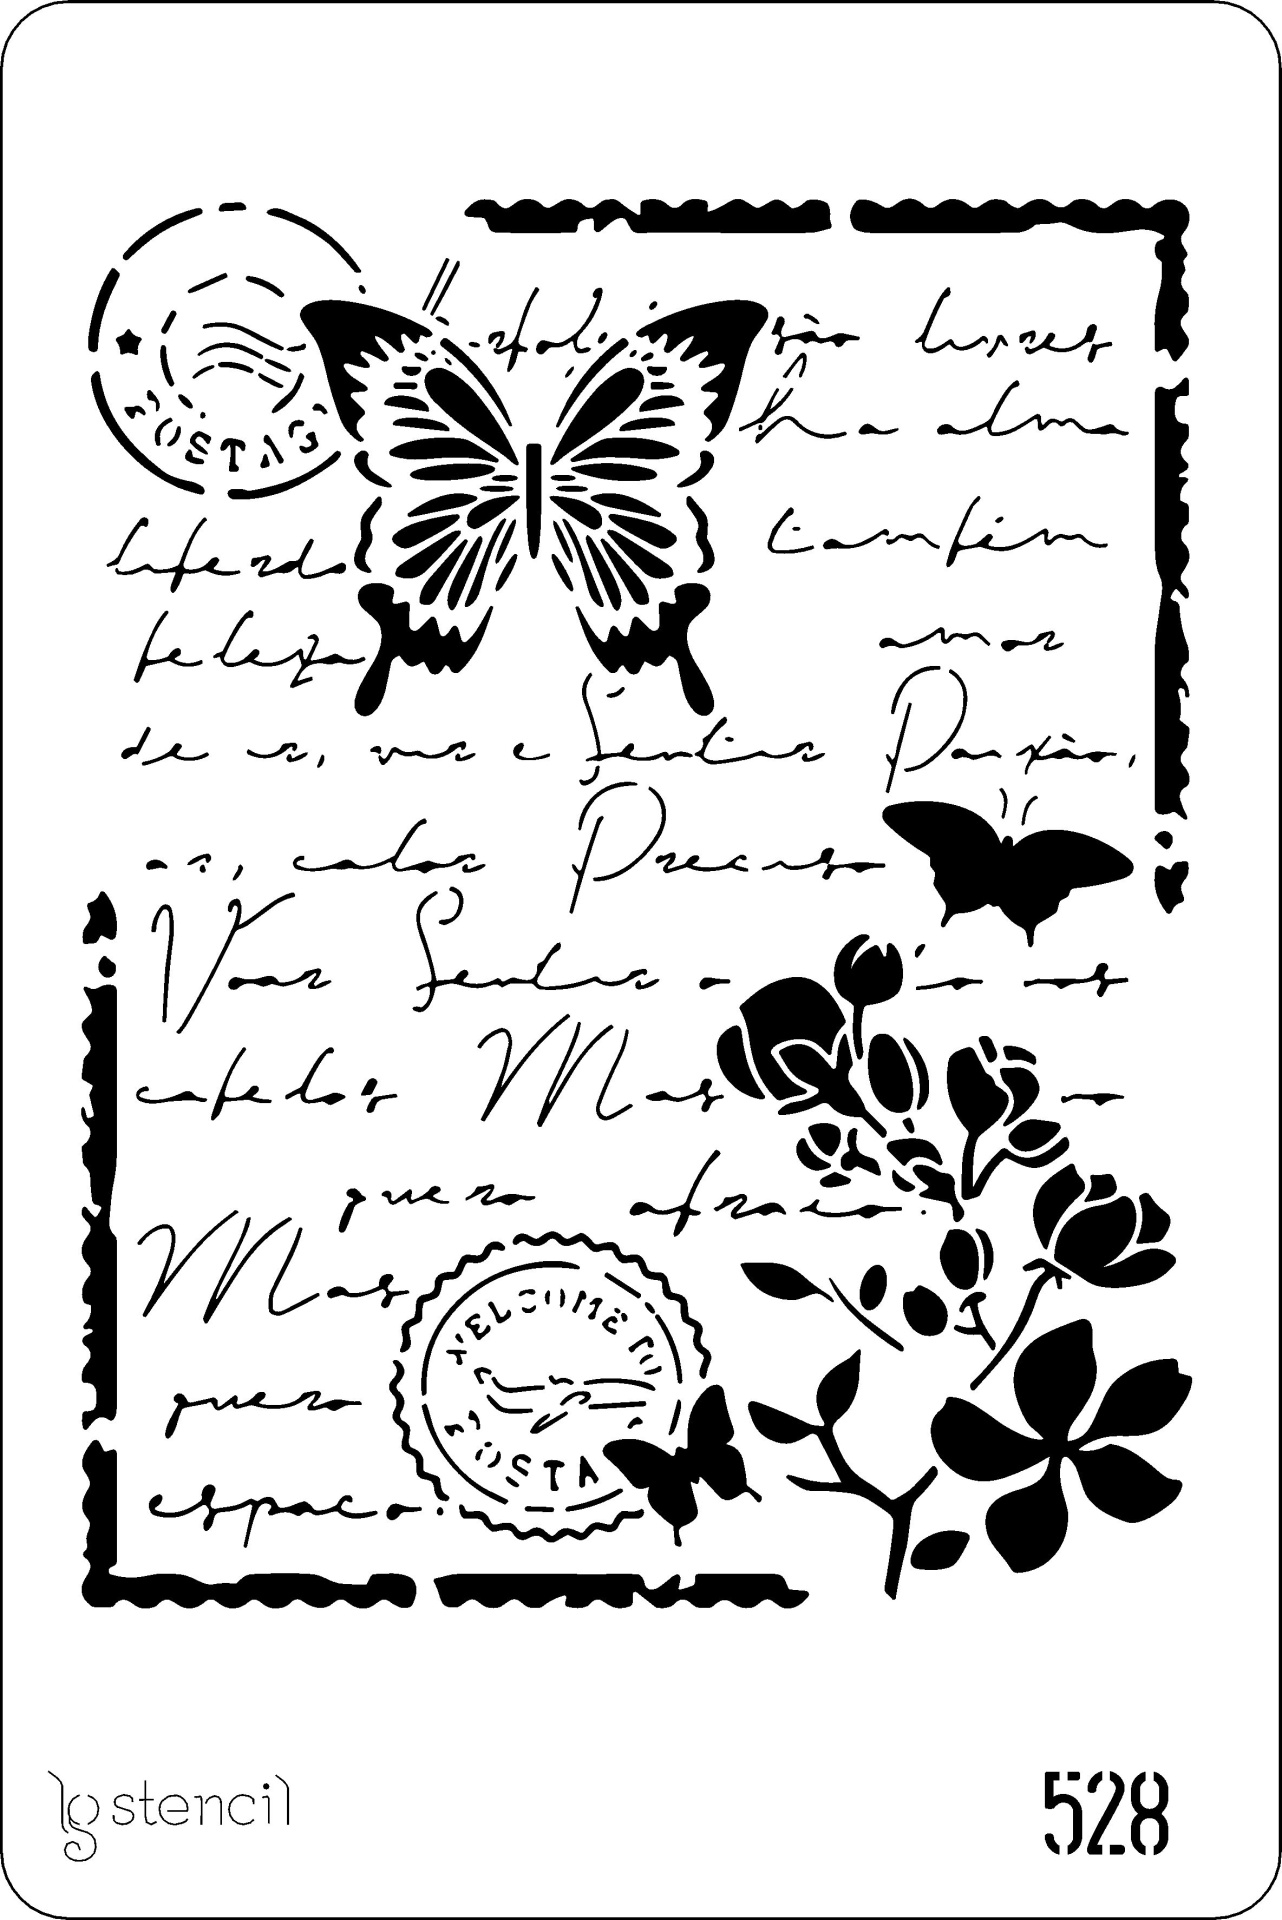 POSTAG
são livres
alma
também
liberda
beleza
amor
de ar, voar e Sentir Paixão,
ar, calor Preciso
Voar Sentir o nos
cabelos Mas o
quero abraço.
Mas
quero
espaço.
WELCOME
POSTA
lg stencil
528